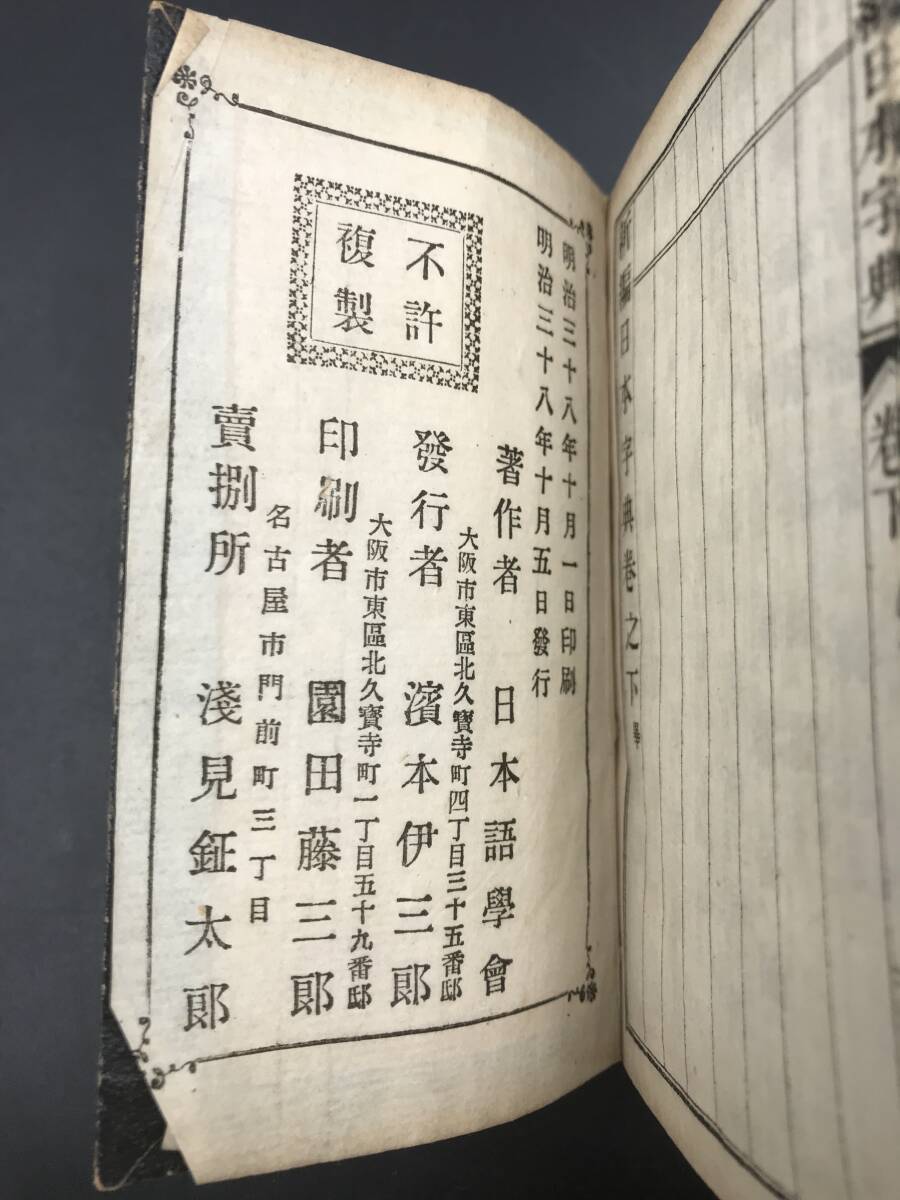 新編日本字典卷之下畢
明治三十八年十月一日印刷
明治三十八年十月五日發行
不許
複製
著作者 日本語學會
大阪市東區北久寶寺町四丁目三十五番邸
發行者 濱本伊三郎
大阪市東區北久寶寺町一丁目五十九番邸
印刷者 園田藤三郎
名古屋市門前町三丁目
賣捌所 淺見鉦太郎
字典
卷下